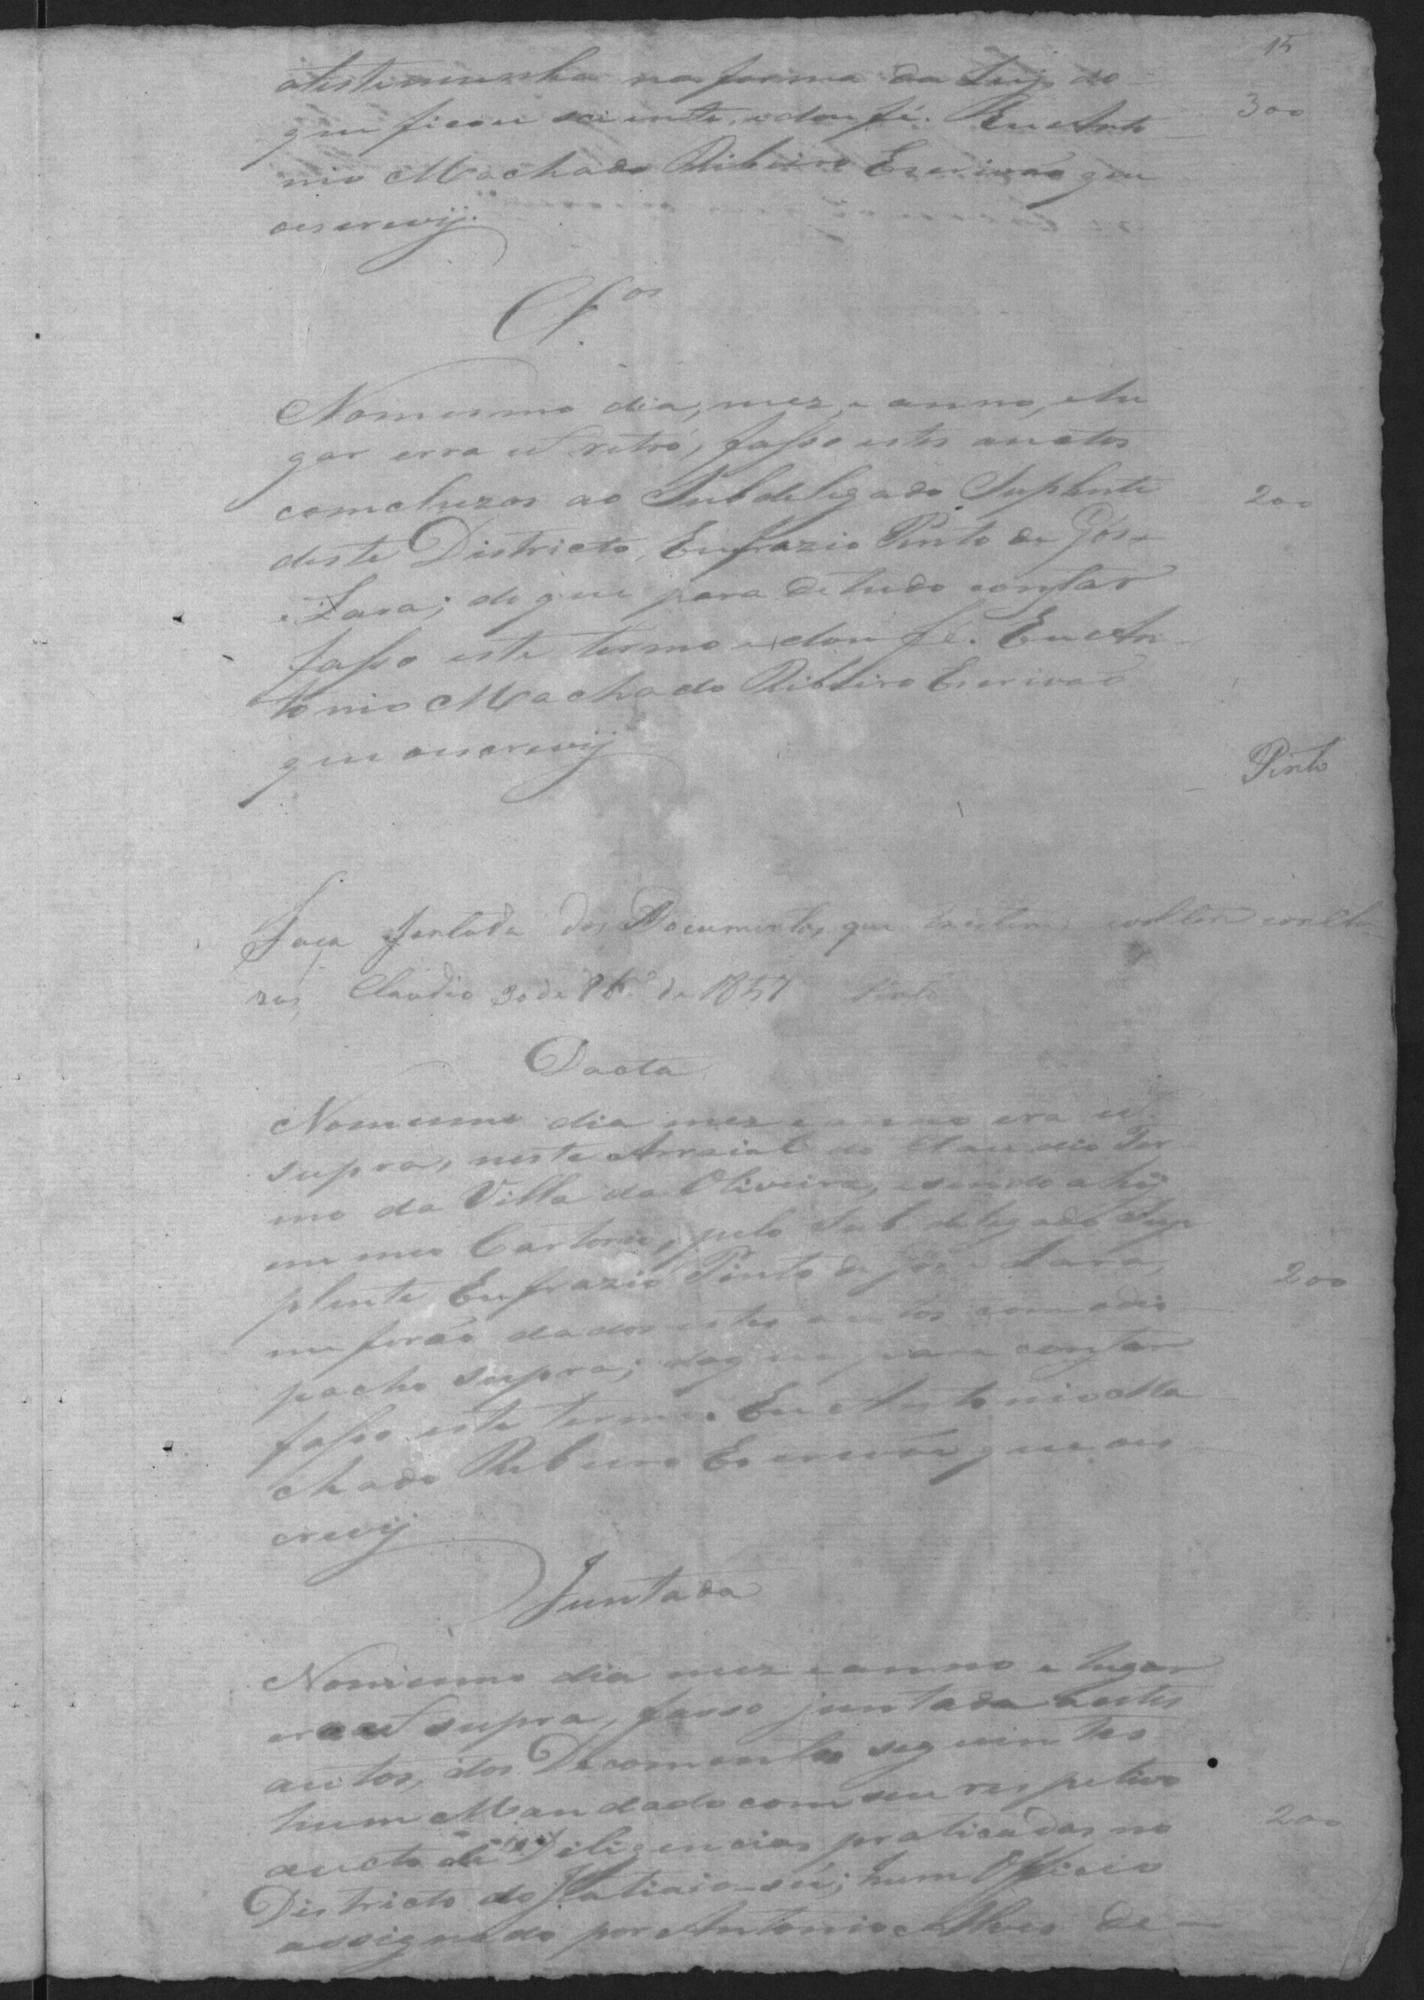 15
atestemunha na forma da Leij, do
300
que ficou sciente, e dou fé. Eu Anto
nio Machado Ribeiro Escrivão que
oescrevij.
Cl.os
Nomesmo dia, mez, e anno, elu
gar erra ut retró, fasso estes auctos
comcluzos ao Subdelegado Suplente
200
deste Districto, Eufrazio Pinto de Góes
e Lara; do que para detudo constar
fasso este termo e dou fé. Eu An
tonio Machado Ribeiro Escrivaõ
que oescrevij
Pinto
Faça Juntada dos Documentos, que
zos, Claudio 30 de de 1857 Pinto
Dacta
Nomesmo dia mez e anno era ut
supra, neste Arraial do Claudio Ter
mo da Villa da Oliveira, esendo ahij
em meo Cartorio, pelo Sub delegado Sup
plente Eufrazio Pinto de Góes e Lara,
200
me foraõ dados estes autos com odis
pacho supra; doque para constar
fasso este termo. Eu Antonio Ma
chado Ribeiro Escrivaõ que oes
crevij
Juntada
Nomesmo dia mez e anno e lugar
era ut supra, fasso juntada aestes
autos, dos Documentos seguintes
hum Mandado com seu respetivo
200
aucto de Diligencias praticadas no
Districto do Itatiaiossú; hum Officio
assignado por Antonio Alves de